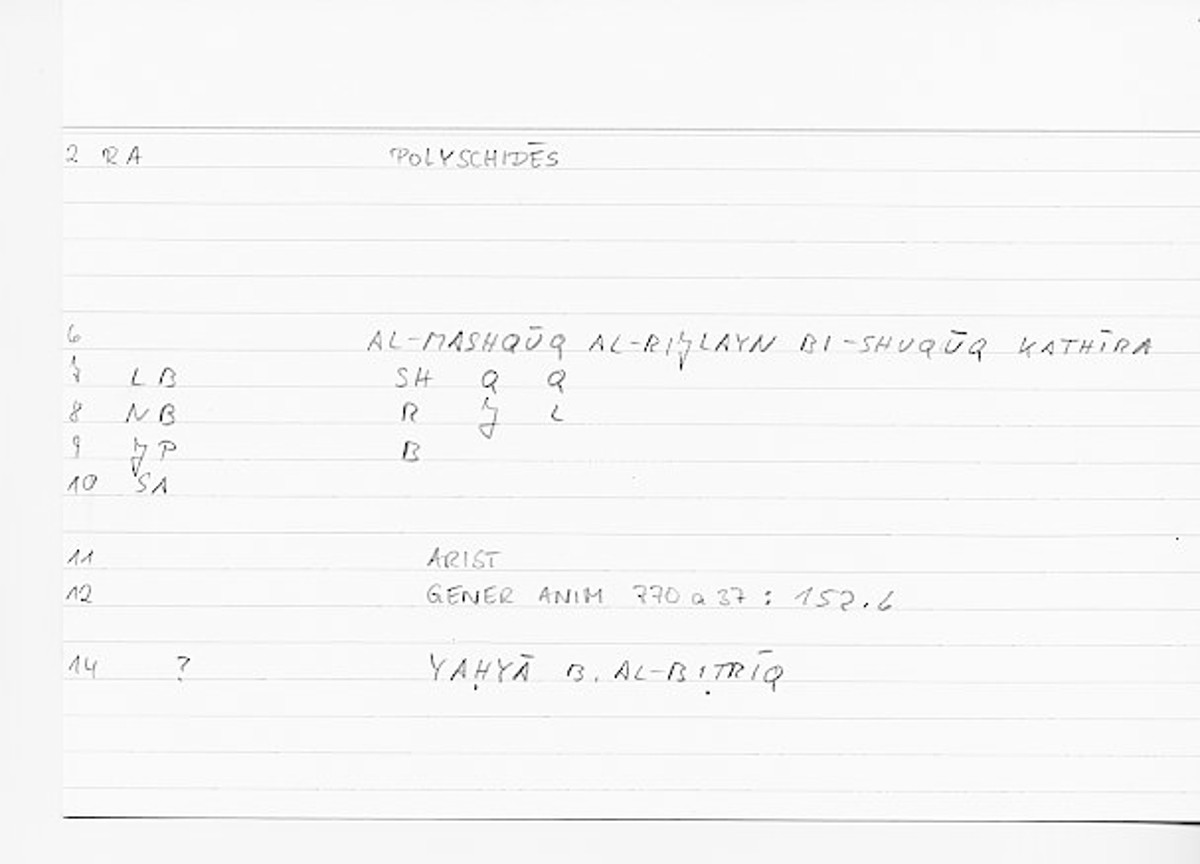 2 RA POLYSCHIDĒS
6 AL-MASHQŪQ AL-RIJLAYN BI-SHUQŪQ KATHĪRA
7 LB SH Q Q
8 NB R J L
9 JP B
10 SA
11 ARIST
12 GENER ANIM 770 a 37 : 152.6
14 ? YAḤYĀ B. AL-BIṬRĪQ